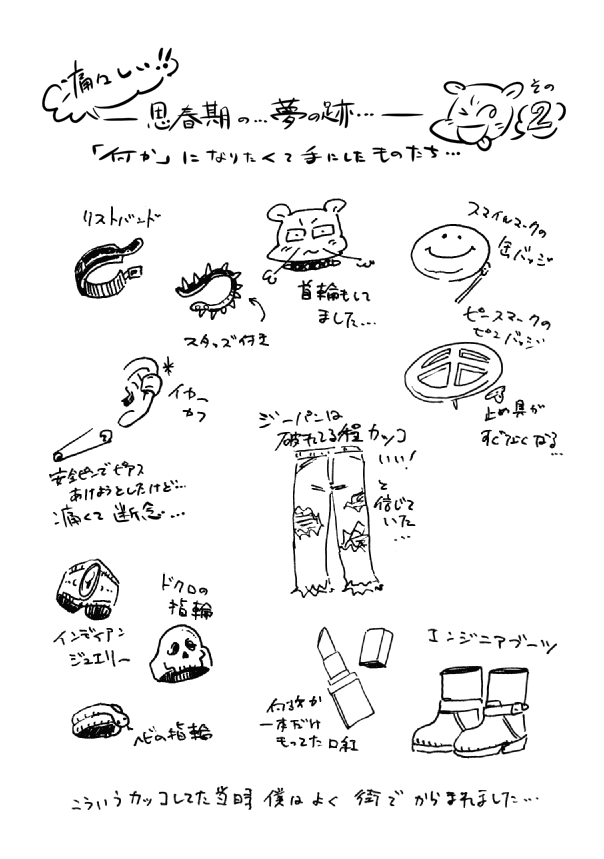 痛々しい!!
思春期の…夢の跡…
その
2
「何か」になりたくて手にしたものたち…
リストバンド
スタッズ付き
首輪もして
ました…
スマイルマークの
缶バッジ
ピースマークの
ピンバッジ
止め具が
すぐなくなる…
イヤー
カフ
安全ピンでピアス
あけようとしたけど…
痛くて断念…
ジーパンは
破れてる程カッコ
いい!
と
信じて
いた
…
インディアン
ジュエリー
ドクロの
指輪
ヘビの指輪
何故か
一本だけ
もってた口紅
エンジニアブーツ
こういうカッコしてた当時僕はよく街でからまれました…